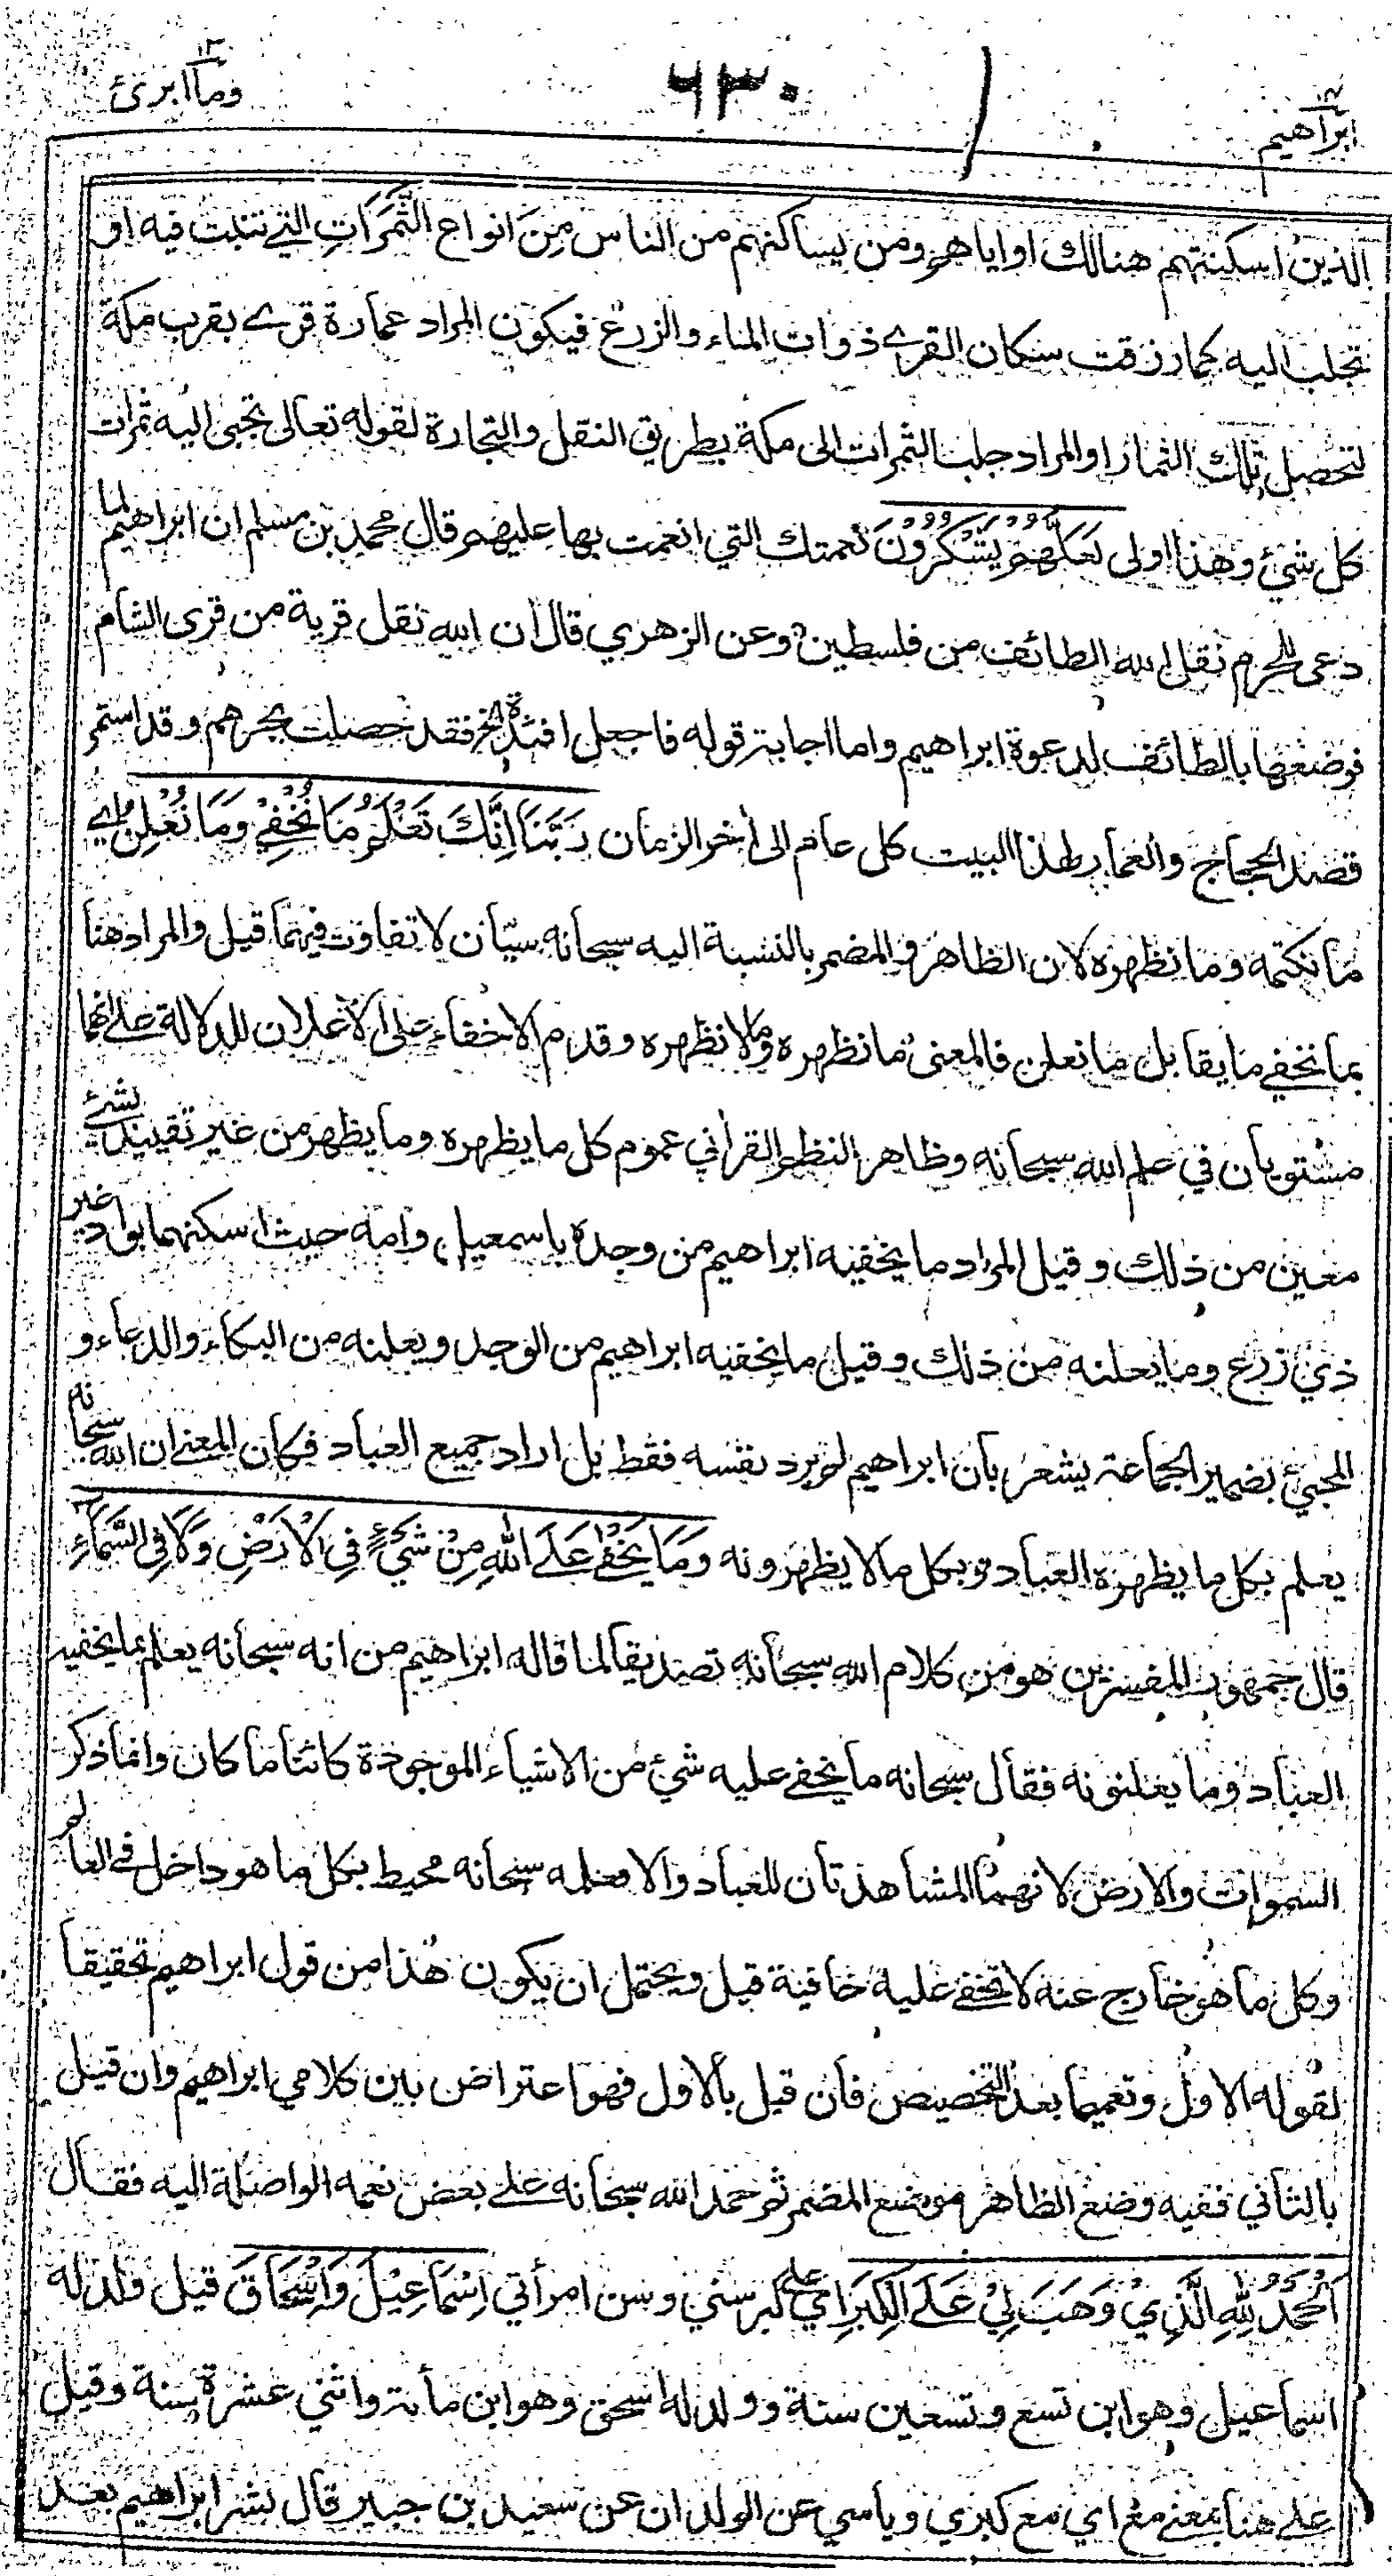 ابراهيم ١٤
٦٣٠
وما ابرئ ١٣
الذين اسكنتهم هنالك او اياهم ومن يساكنهم من الناس مِنَ انواع الثَّمَرَاتِ التي تنبت فيه او
تجلب اليه كما رزقت سكان القرے ذوات الماء والزرع فيكون المراد عمارة قرے بقرب مكة
لتحصل تلك الثمار او المراد جلب الثمرات الى مكة بطريق النقل والتجارة لقوله تعالى تجبى اليه ثمرات
كل شئ وهذا اولى لَعَلَّهُمْ يَشْكُرُوْنَ نعمتك التي انعمت بها عليهم قال محمد بن مسلم ان ابراهيم لما
دعى للحرم نقل الله الطائف من فلسطين وعن الزهري قال ان الله نقل قرية من قرى الشام
فوضعها بالطائف لدعوة ابراهيم واما اجابة قوله فاجعل افئدة الخ فقد حصلت بجرهم وقد استمر
قصد الحجاج والعمار لهذا البيت كل عام الى أخر الزمان رَبَّنَا اِنَّكَ تَعْلَمُ مَا نُخْفِيْ وَمَا نُعْلِنُ اے
ما نكتمه وما نظهره لان الظاهر والمضمر بالنسبة اليه سبحانه سيّان لا تفاوت فيهما قيل والمراد هنا
بما نخفي ما يقابل ما نعلن فالمعنى ما نظهره وما لا نظهره وقدم الاخفاء على الاعلان للدلالة على انهما
مستويان في علم الله سبحانه وظاهر النظم القرأني عموم كل ما يظهره وما يظهر من غير تقييد بشئ
معين من ذلك وقيل المراد ما يخفيه ابراهيم من وجده باسمعيل وامه حيث اسكنهما بواد غير
ذي زرع وما يعلنه من ذلك وقيل ما يخفيه ابراهيم من الوجد ويعلنه من البكاء والدعاء و
المجئ بضمير الجماعة يشعر بان ابراهيم لم يرد نفسه فقط بل اراد جميع العباد فكان المعنى ان الله سبحانه
يعلم بكل ما يظهره العباد وبكل ما لا يظهرونه وَمَا يَخْفٰى عَلَى اللهِ مِنْ شَيْءٍ فِى الْاَرْضِ وَلَا فِى السَّمَآءِ
قال جمهور المفسرين هو من كلام الله سبحانه تصديقا لما قاله ابراهيم من انه سبحانه يعلم بما يخفيه
العباد وما يعلنونه فقال سبحانه ما يخفى عليه شئ من الاشياء الموجودة كائنا ما كان وانما ذكر
السموات والارض لانهما المشاهدتان للعباد والا فعلمه سبحانه محيط بكل ما هو داخل فى العالم
وكل ما هو خارج عنه لا تخفى عليه خافية قيل ويحتمل ان يكون هذا من قول ابراهيم تحقيقا
لقوله الاول وتعميما بعد التخصيص فان قيل بالاول فهو اعتراض بين كلامي ابراهيم وان قيل
بالثاني ففيه وضع الظاهر موضع المضمر ثم حمد الله سبحانه على بعض نعمه الواصلة اليه فقال
اَلْحَمْدُ لِلّٰهِ الَّذِيْ وَهَبَ لِيْ عَلَى الْكِبَرِ اي على كبر سني وسن امرأتي اِسْمَاعِيْلَ وَاِسْحَاقَ قيل ولد له
اسماعيل وهو ابن تسع وتسعين سنة وولد له اسحق وهو ابن مأئة واثنتي عشرة سنة وقيل
على هنا بمعنى مع اي مع كبري ويأسي عن الولد ان عن سعيد بن جبير قال بشر ابراهيم بعد